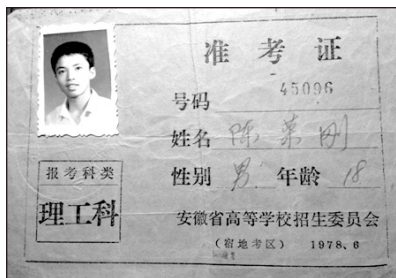 准考证
号码 45096
姓名 陈荣刚
性别 男 年龄 18
报考科类
理工科
安徽省高等学校招生委员会
(宿地考区) 1978、6